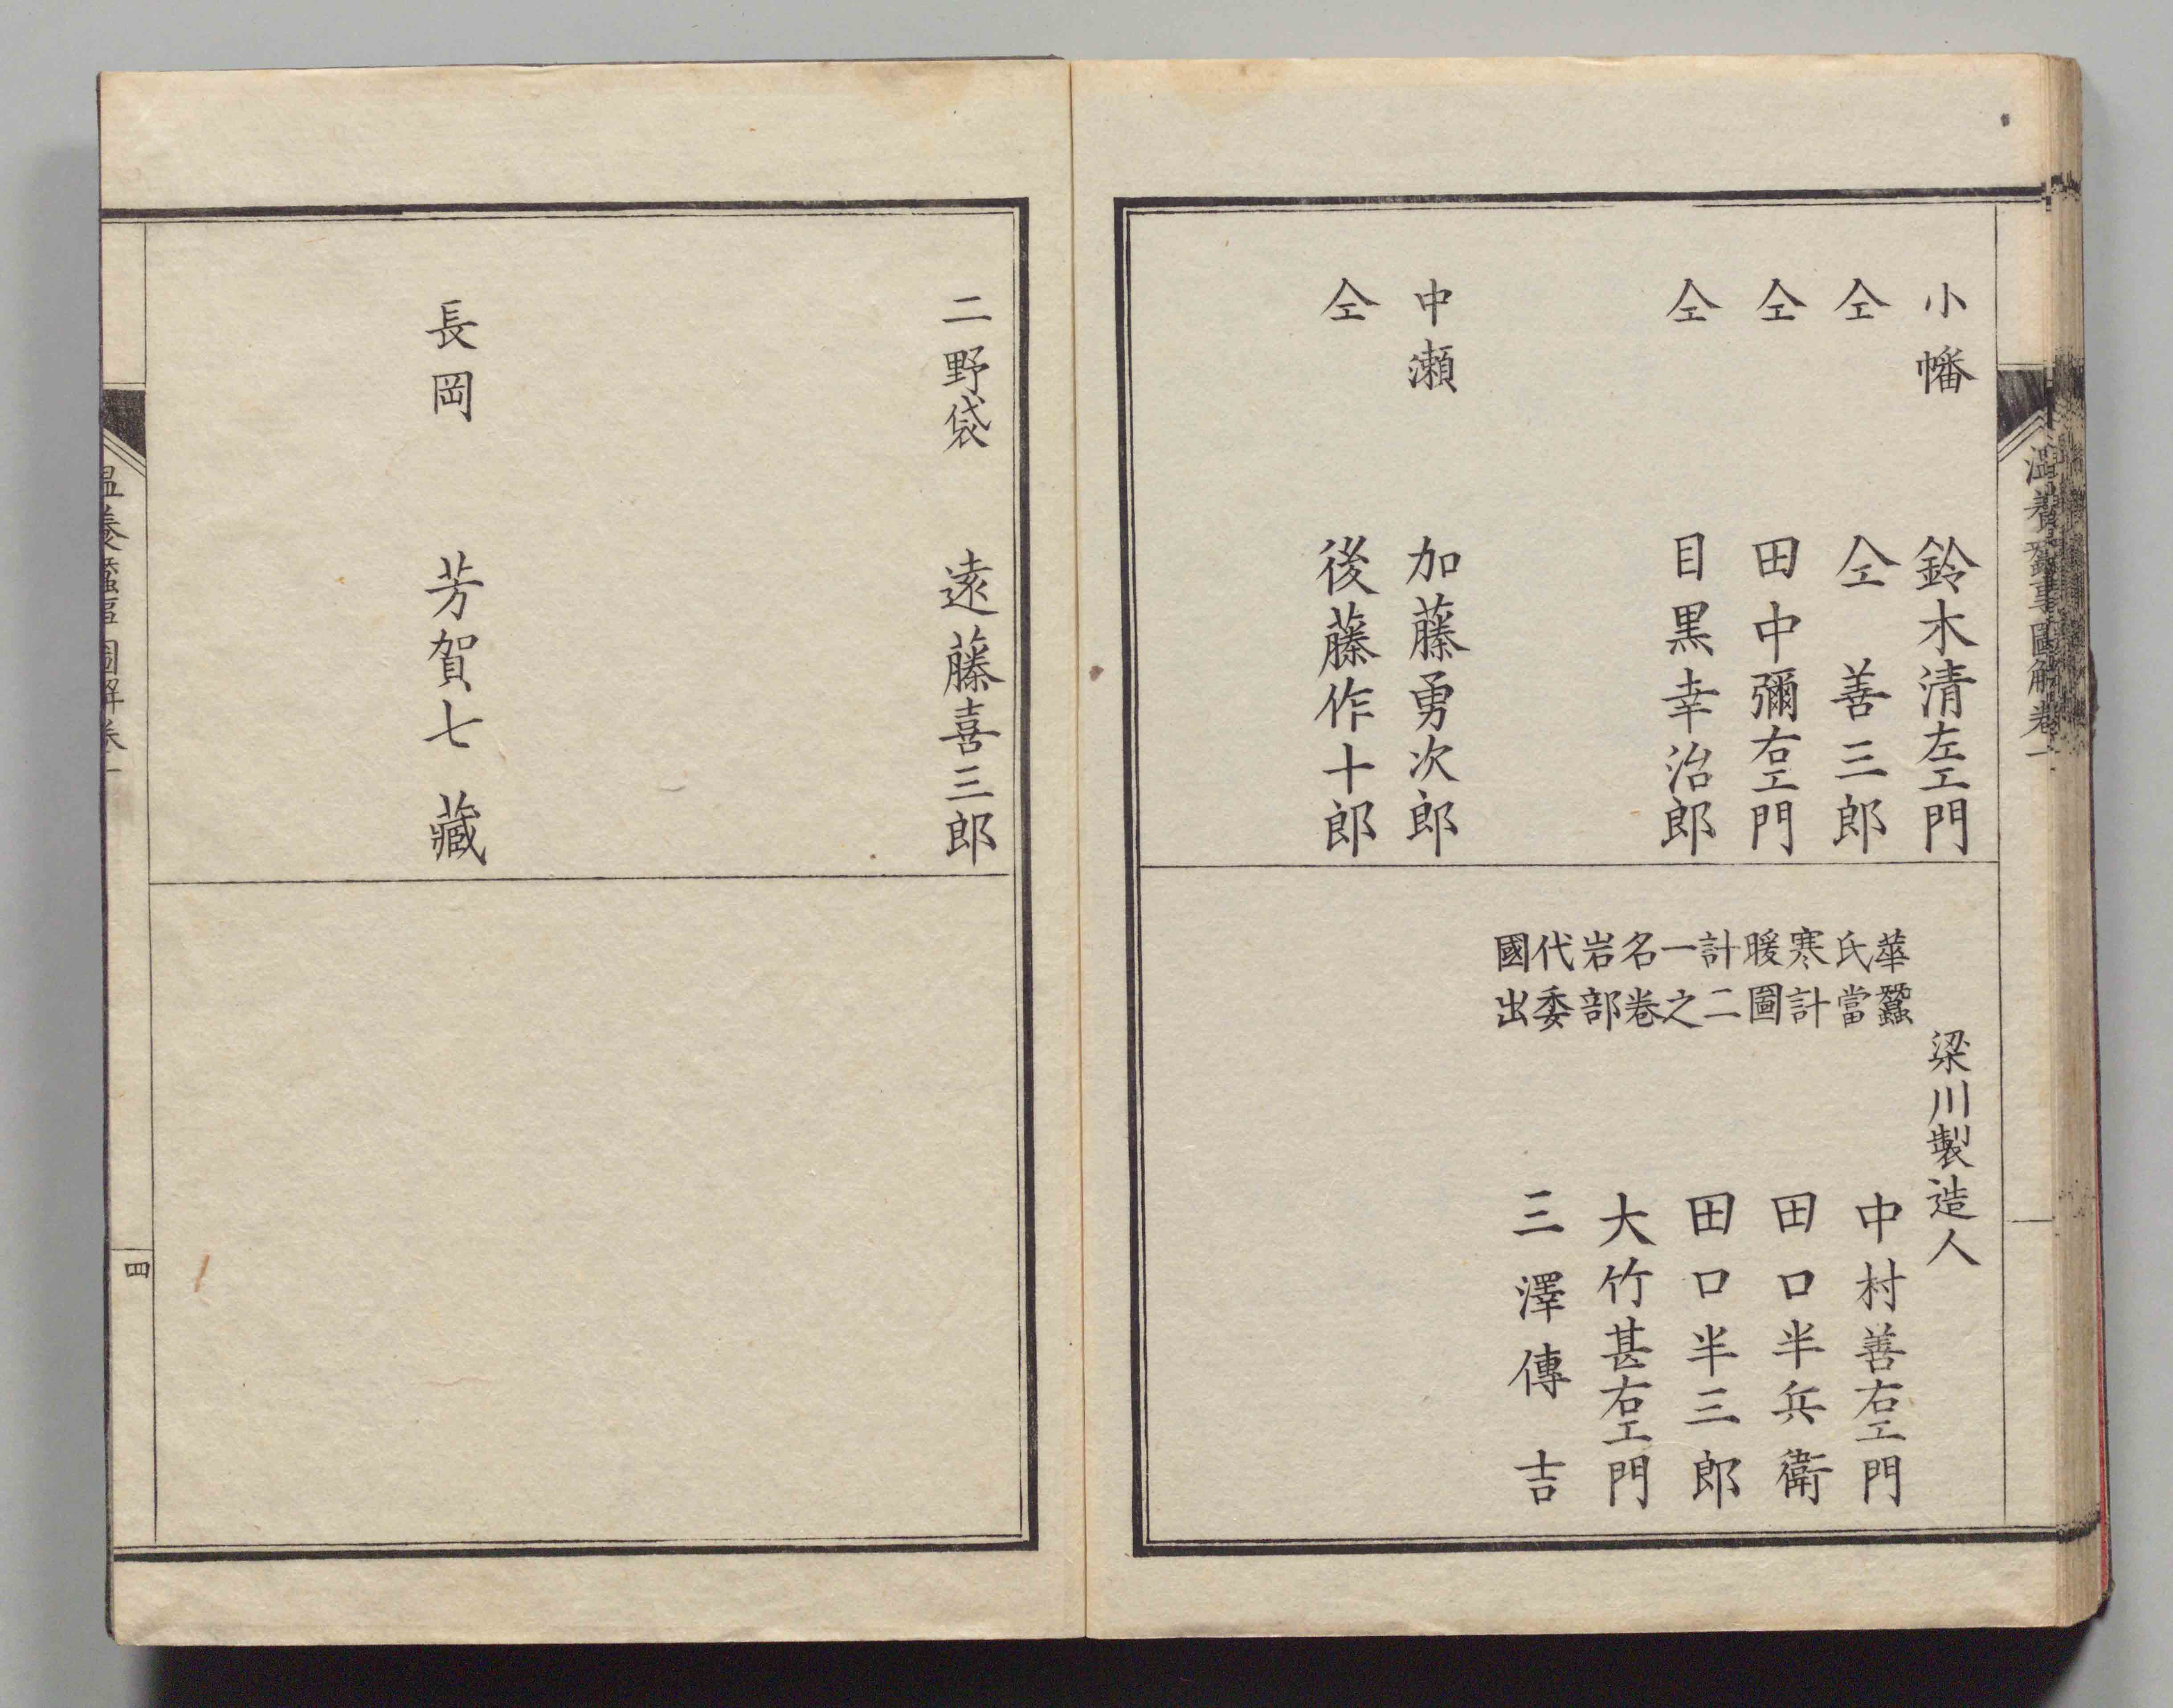 温養蠶事圖解卷一
小幡 鈴木清左エ門
仝 仝 善三郎
仝 田中彌右エ門
仝 目黒幸治郎
中瀬 加藤勇次郎
仝 後藤作十郎
梁川製造人
華氏寒暖計一名岩代國
蠶當計圖二之卷部委出
中村善右エ門
田口半兵衛
田口半三郎
大竹甚右エ門
三澤傳吉
二野袋 遠藤喜三郎
長岡 芳賀七藏
四